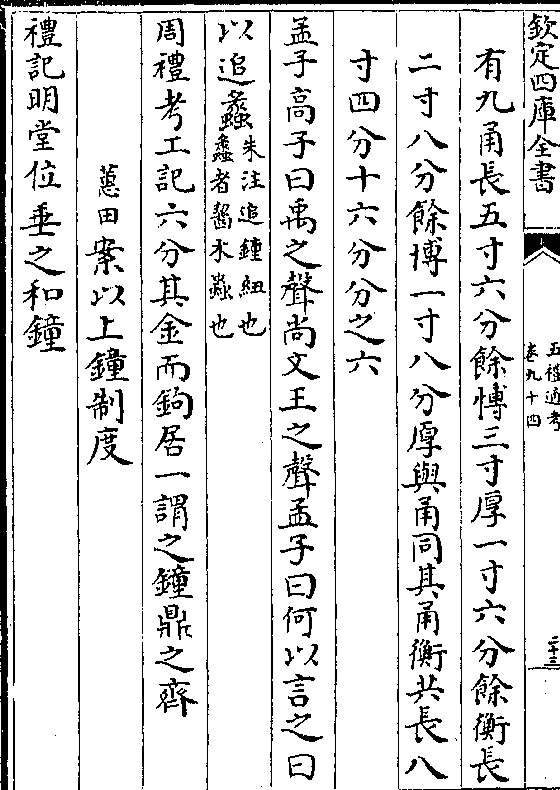 欽定四庫全書
五禮通考
卷九十四
二十三
有九甬長五寸六分餘博三寸厚一寸六分餘衡長
二寸八分餘博一寸八分厚與甬同其甬衡共長八
寸四分十六分分之六
孟子高子曰禹之聲尚文王之聲孟子曰何以言之曰
以追蠡
朱注追鍾紐也
蠡者齧木蟲也
周禮考工記六分其金而錫居一謂之鐘鼎之齊
蕙田案以上鐘制度
禮記明堂位垂之和鐘